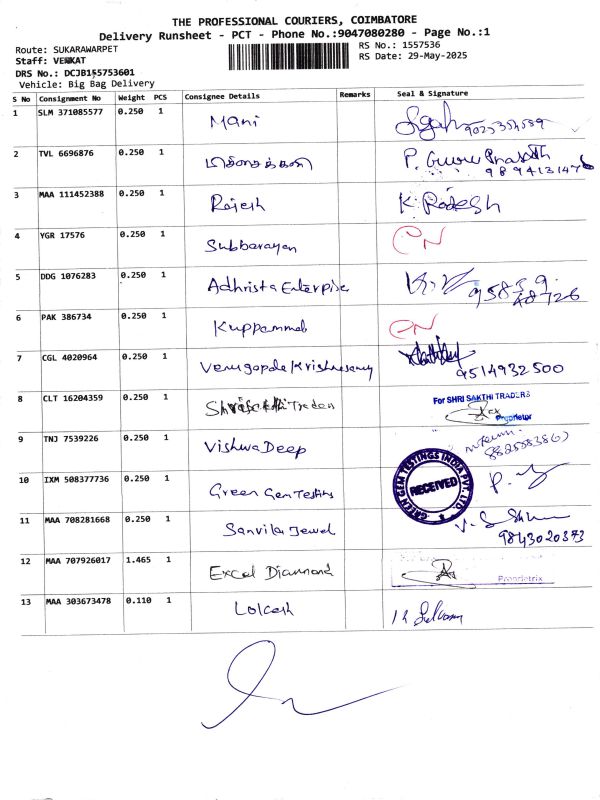 THE PROFESSIONAL COURIERS, COIMBATORE
Delivery Runsheet - PCT - Phone No.:9047080280 - Page No.:1
Route: SUKARAWARPET
RS No.: 1557536
Staff: VENKAT
RS Date: 29-May-2025
DRS No.: DCJB155753601
Vehicle: Big Bag Delivery
S No Consignment No Weight PCS Consignee Details Remarks Seal & Signature
1 SLM 371085577 0.250 1 Mani
2 TVL 6696876 0.250 1 P. Guru Prasath
9894131476
3 MAA 111452388 0.250 1 Rajesh K. Rajesh
4 YGR 17576 0.250 1 Subbarayan
5 DDG 1076283 0.250 1 Adhrista Enterprise
6 PAK 386734 0.250 1 Kuppammal
7 CGL 4020964 0.250 1 Venugopala Krishnasamy
9514932500
8 CLT 16204359 0.250 1 Traders For SHRI SAKTHI TRADERS
Proprietor
9 TNJ 7539226 0.250 1 Vishwa Deep
10 IXM 508377736 0.250 1 Green Gem Testing GREEN GEM TESTINGS INDIA PVT. LTD.
RECEIVED
11 MAA 708281668 0.250 1 Sanvika Jewel
9843020373
12 MAA 707926017 1.465 1 Excel Diamond
Proprietrix
13 MAA 303673478 0.110 1 Lalcash